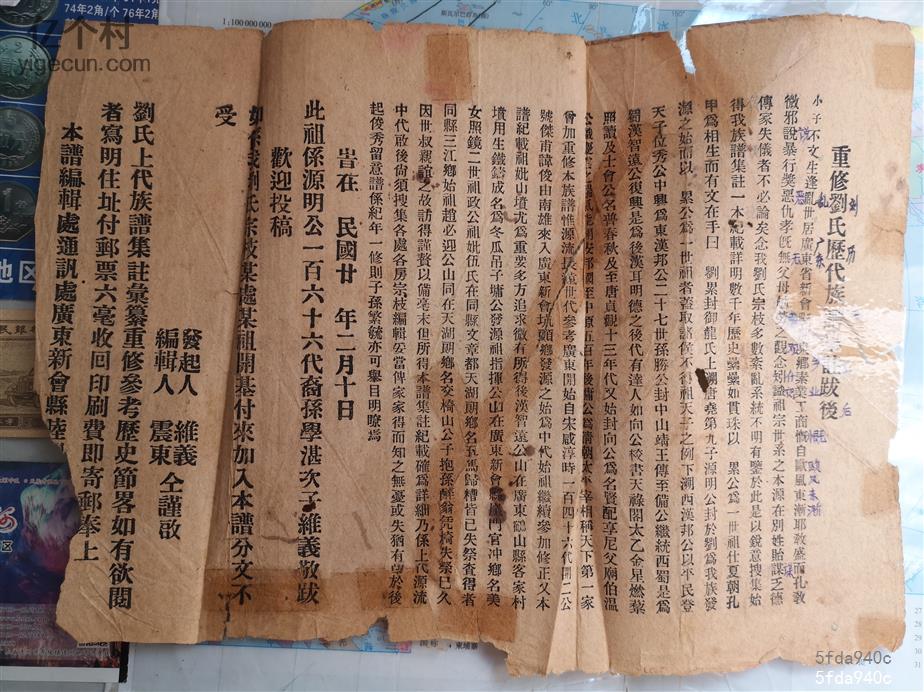 重修劉氏歷代族譜
註跋後
小子不文生逢亂世居廣東省新會
鄉業業工商慨自歐風東漸耶教盛而孔教
微邪說暴行獎惡仇孝旣無父母
之觀念刻論祖宗世系之本源在別姓貽謀乏德
傳家失儀者不必論矣念我劉氏宗枝多數紊亂系統不明有鑒於此是以銳意搜集始
得我族譜集註一本記載詳明數千年歷史纍纍如貫珠以 累公爲一世祖仕夏朝孔
甲爲相生而有文在手曰 劉累封御龍氏上溯唐堯第九子源明公封於劉爲我族發
源之始而以 累公爲一世祖者蓋取諸侯不得祖天子之例下溯西漢邦公以平民登
天子位秀公中興爲東漢邦公二十七世孫勝公封中山靖王傳至備公繼統西蜀是爲
蜀漢智遠公復興是爲後漢耳明德之後代有達人如向公校書天祿閣太乙金星燃藜
照讀及士會公名普春秋及至唐貞觀十三年代又始封向公爲名賢配享尼父廟伯溫
原五百年後
公爲淸朝太
宰相稱天下第一家
曾加重修本族譜惟源流長
世代參考廣東開始自宋咸淳時一百四十六代開二公
號傑甫諱俊由南雄來入廣東新會坑頭鄉發源之始爲中代始祖繼續參加修正又本
譜紀載祖妣山墳尤爲重要多方追求微有所得後漢智遠公山在廣東鶴山縣客家村
墳用生鐵鑄成名爲冬瓜吊子墉公發源祖指揮公山在廣東新會縣崖門官冲鄉名美
女照鏡二世祖政公妣伍氏在同縣文章都天湖朗鄉名五馬歸槽皆已失祭查得者
同縣三江鄉始祖趙必迎公山同在天湖朗鄉名交椅山公子抱孫醉翁凭椅失祭已久
因世叔親誼之故訪得謹贅以備毫末但所得本譜集註紀載確爲詳細乃係上代源流
中代啟後尙須搜集各處各房宗枝編輯妥當俾家家得而知之無憂或失猶有望於後
起俊秀留意譜係紀年一修則子孫繁毓亦可舉目明瞭焉
旹在 民國廿 年二月十日
此祖係源明公一百六十六代裔孫學湛次子維義敬跋
歡迎投稿
如係我劉氏宗枝某處某祖開基付來加入本譜分文不
受
發起人 維義
編輯人 震東 仝謹啟
劉氏上代族譜集註彙纂重修參考歷史節畧如有欲閱
者寫明住址付郵票六毫收回印刷費即寄郵奉上
本譜編輯處通訊處廣東新會縣陸
亿个村
yigecun.com
74年2角/个 76年2角
1:100 000 000
地区
民銀
5fda940c
5fda940c